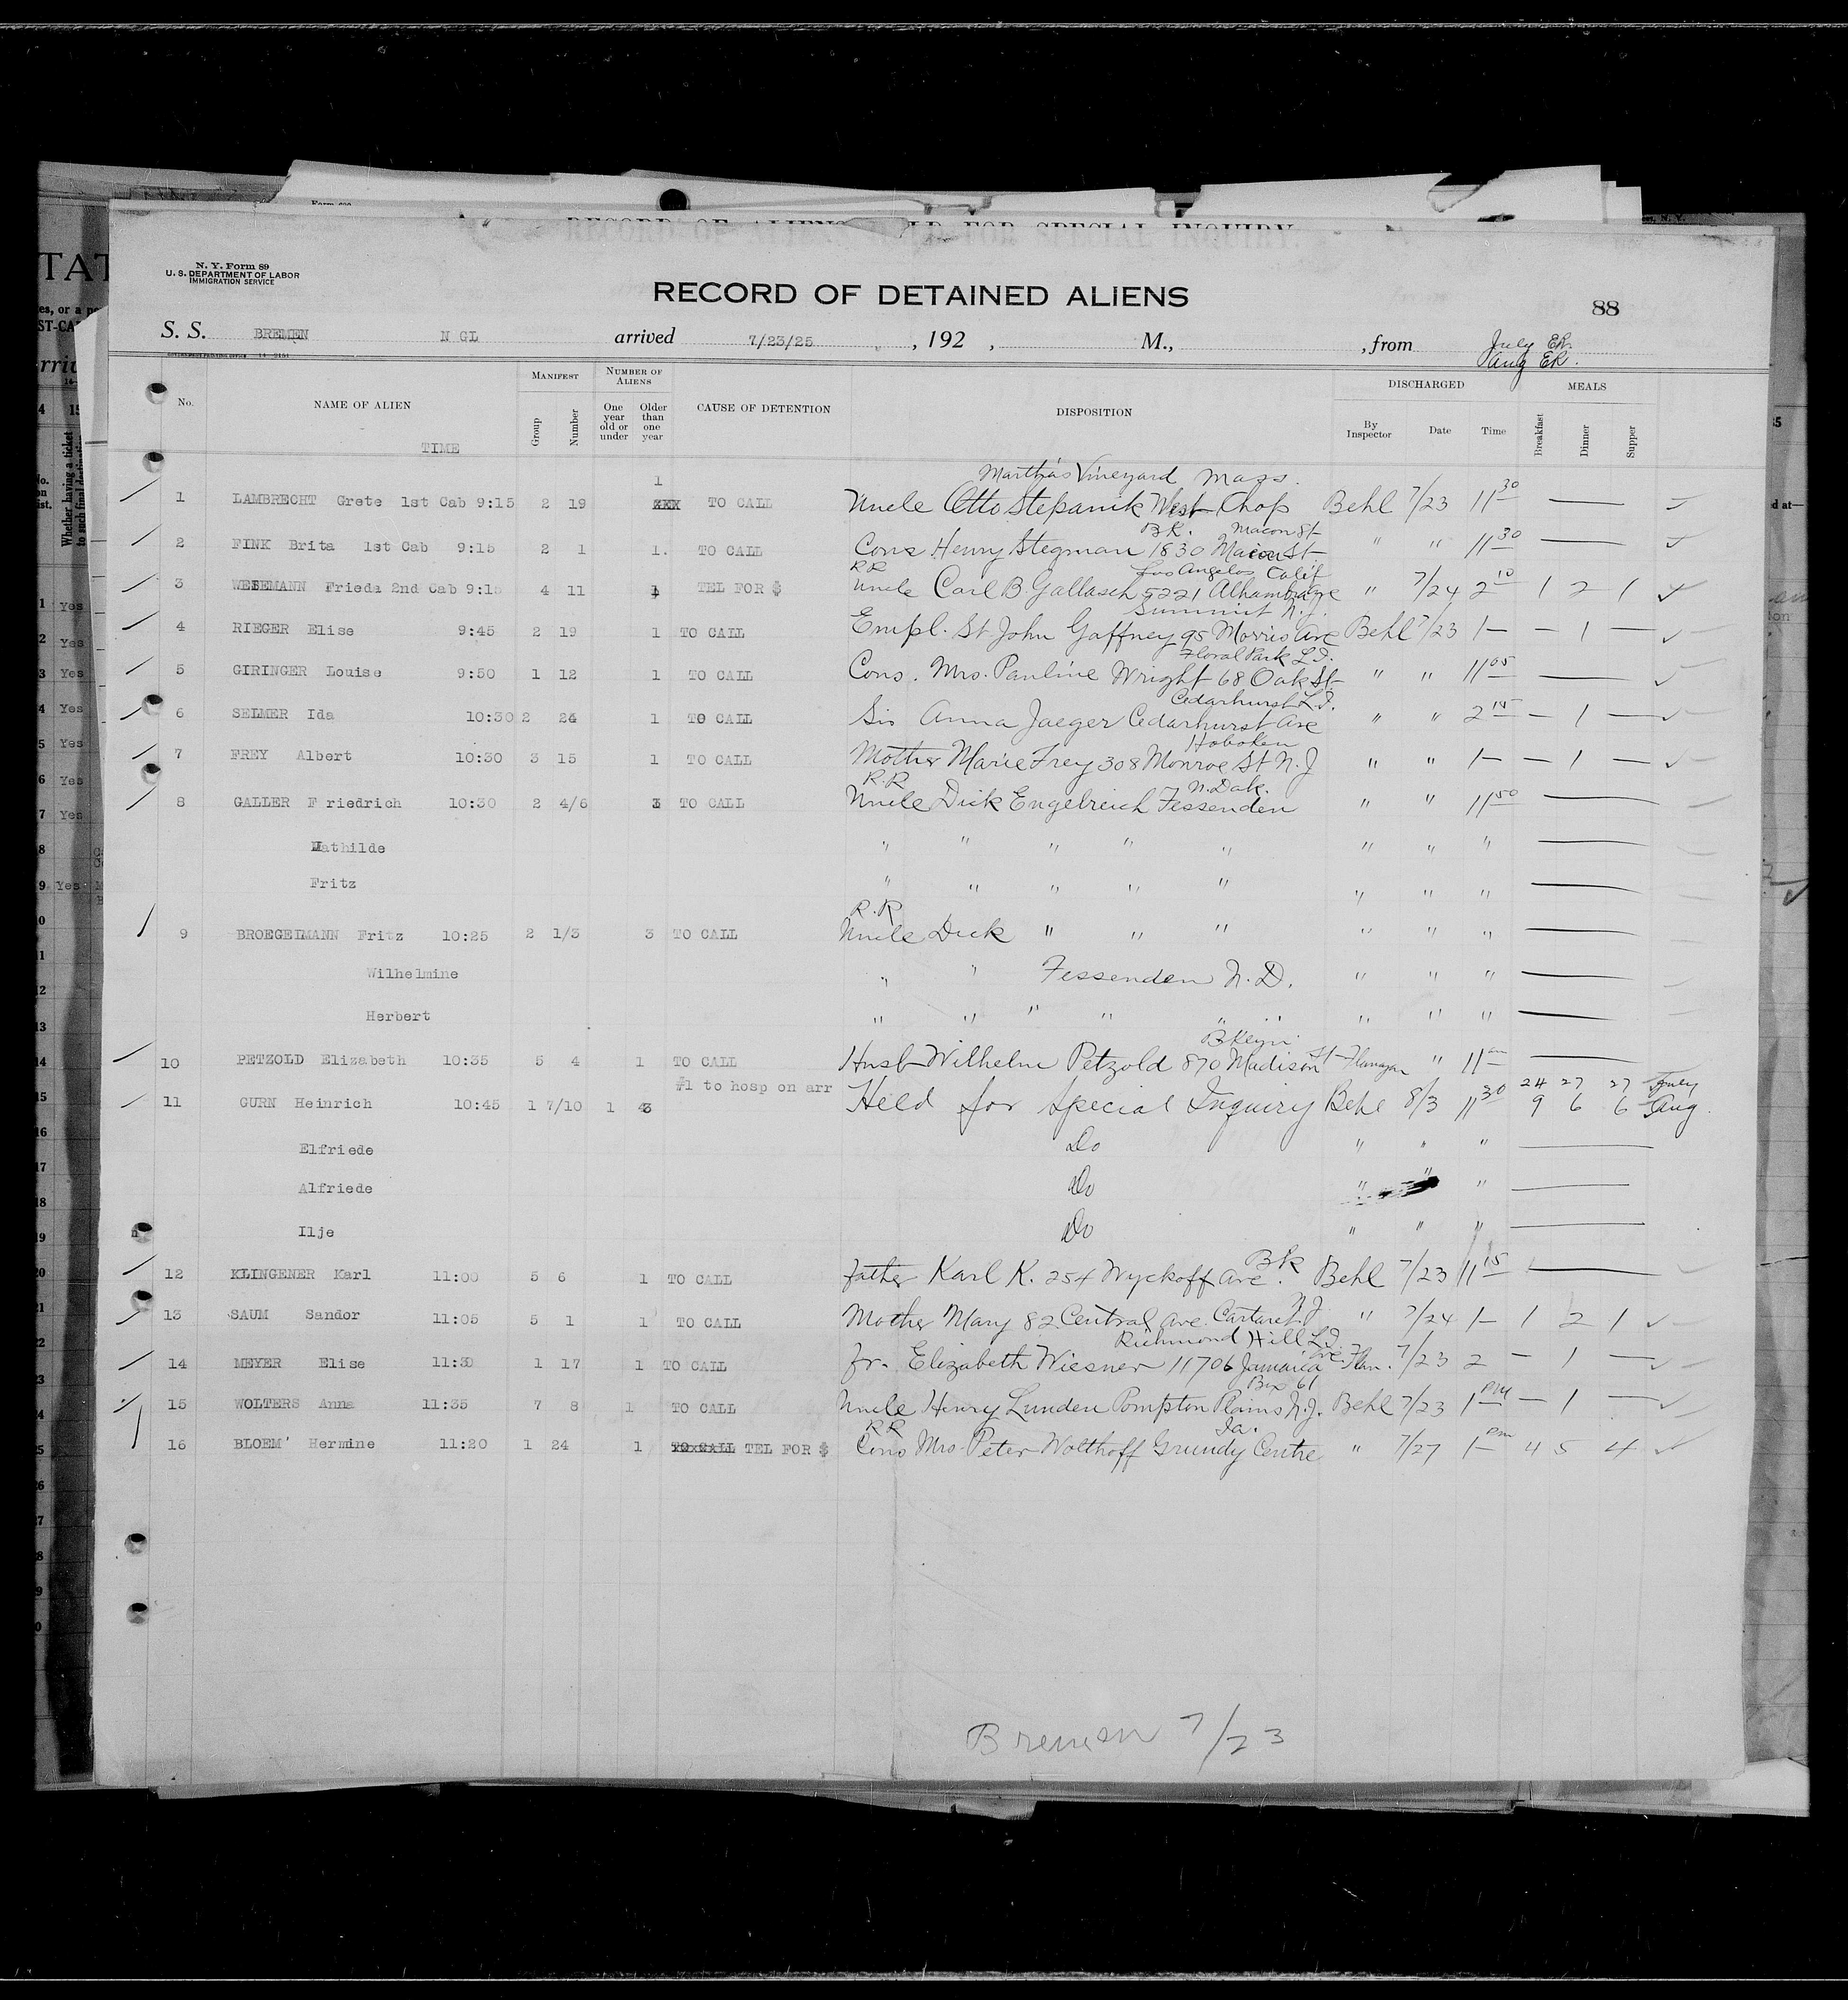 N. Y. Form 89
U. S. DEPARTMENT OF LABOR
IMMIGRATION SERVICE
RECORD OF DETAINED ALIENS
88
S. S. BREMEN N GL arrived 7/23/25, 192 , M., , from July ER.
Aug ER.
No. NAME OF ALIEN TIME MANIFEST Group Number NUMBER OF ALIENS One year old or under Older than one year CAUSE OF DETENTION DISPOSITION DISCHARGED By Inspector Date Time MEALS Breakfast Dinner Supper
1 Martha's Vineyard Mass.
1 LAMBRECHT Grete 1st Cab 9:15 2 19 TO CALL Uncle Otto Stepanik West Chop Behl 7/23 11 30 —
BK. Macon St
2 FINK Brita 1st Cab 9:15 2 1 1. TO CALL Cons Henry Stegman 1830 Macon St " " 11 30 —
RR Los Angelos Calif
3 WEISEMANN Frieda 2nd Cab 9:15 4 11 1 TEL FOR $ Uncle Carl B. Gallasch 5221 Alhambra Ave " 7/24 2 10 1 2 1
Summit N.J.
4 RIEGER Elise 9:45 2 19 1 TO CALL Empl. St John Gaffney 95 Morris Ave Behl 7/23 1— — 1 —
Floral Park L.I.
5 GIRINGER Louise 9:50 1 12 1 TO CALL Cons. Mrs. Pauline Wright 68 Oak St " " 11 05 —
Cedarhurst L.I.
6 SELMER Ida 10:30 2 24 1 TO CALL Sis Anna Jaeger Cedarhurst Ave " " 2 15 — 1 —
Hoboken
7 FREY Albert 10:30 3 15 1 TO CALL Mother Marie Frey 308 Monroe St N.J " " 1— — 1 —
R.R N. Dak.
8 GALLER F riedrich 10:30 2 4/6 3 TO CALL Uncle Dick Engelreich Fessenden " " 11 50 —
Mathilde " " " " " " " " —
Fritz " " " " " " " " —
R.R
9 BROEGELMANN Fritz 10:25 2 1/3 3 TO CALL Uncle Dick " " " " " " —
Wilhelmine " " Fessenden N.D. " " " —
Herbert " " " " " " " " —
Bklyn
10 PETZOLD Elizabeth 10:35 5 4 1 TO CALL Husb Wilhelm Petzold 870 Madison St Flanagan " 11 am —
#1 to hosp on arr 24 27 27 July
11 GURN Heinrich 10:45 1 7/10 1 3 Held for Special Inquiry Behl 8/3 11 30 9 6 6 Aug.
Elfriede Do " " " —
Alfriede Do " " " —
Ilje Do " " " —
Bk
12 KLINGENER Karl 11:00 5 6 1 TO CALL Father Karl K. 254 Wyckoff Ave. Behl 7/23 11 15 —
13 SAUM Sandor 11:05 5 1 1 TO CALL Mother Mary 82 Central Ave. Cartaret N.J " 7/24 1— 1 2 1
Richmond Hill L.I
14 MEYER Elise 11:30 1 17 1 TO CALL fr. Elizabeth Wiesner 11706 Jamaica Ave Flan. 7/23 2 — 1 —
Box 61
15 WOLTERS Anna 11:35 7 8 1 TO CALL Uncle Henry Lunden Pompton Plains N.J. Behl 7/23 1 PM — 1 —
RR Ia.
16 BLOEM' Hermine 11:20 1 24 1 TO CALL TEL FOR $ Cons Mrs. Peter Wolthoff Grundy Centre " 7/27 1 PM 4 5 4
Bremen 7/23